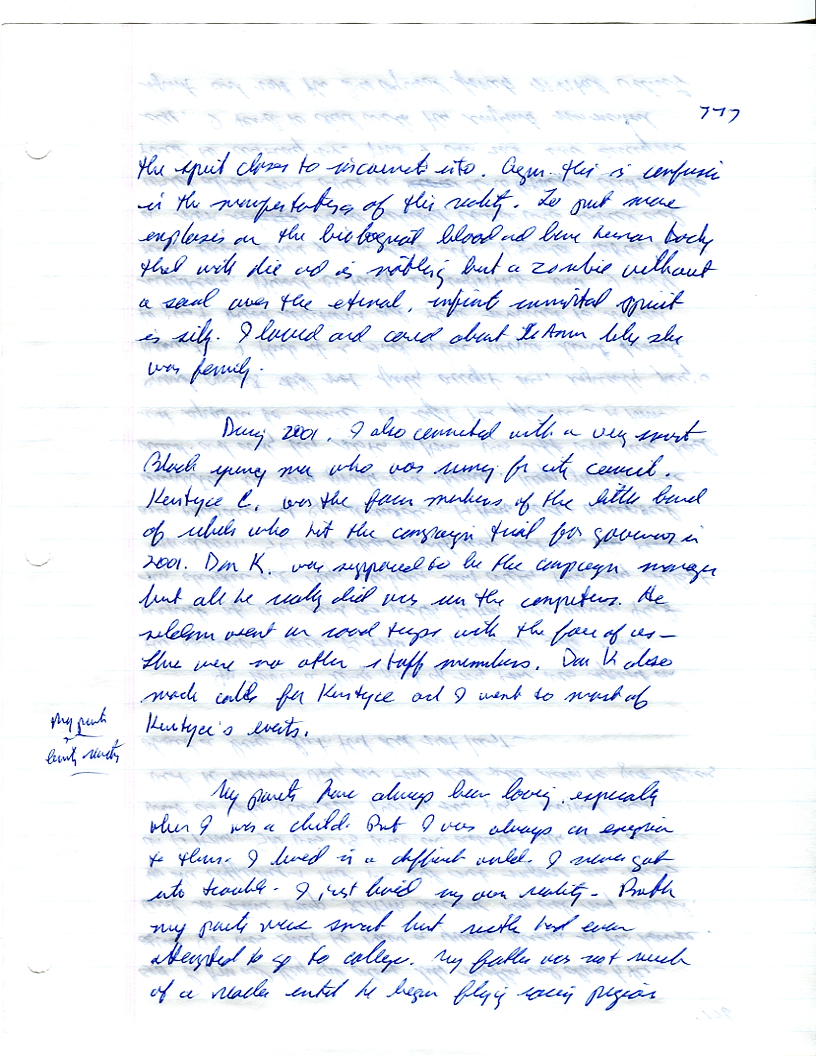 777
the spirit choses to incarnate into. Again this is confusion
in the manifestations of this reality. To put more
emphasis on the biological blood and bone human body
that will die and is nothing but a zombie without
a soul over the eternal, infinite immortal spirit
is silly. I loved and cared about like she
was family.
During 2001, I also connected with a very smart
Black young man who was running for city council.
Kentyce C. was the four members of the little band
of rebels who hit the campaign trail for governor in
2001. Dan K. was supposed to be the campaign manager
but all he really did was run the computers. He
seldom went on road trips with the four of us—
there were no other staff members. Dan K also
made calls for Kentyce and I went to most of
Kentyce's events.
My parents
family reality
My parents have always been loving, especially
when I was a child. But I was always an enigma
to them. I lived in a different world. I never got
into trouble. I just lived my own reality. Both
my parents were smart but neither had even
attempted to go to college. My father was not much
of a reader until he began flying racing pigeons